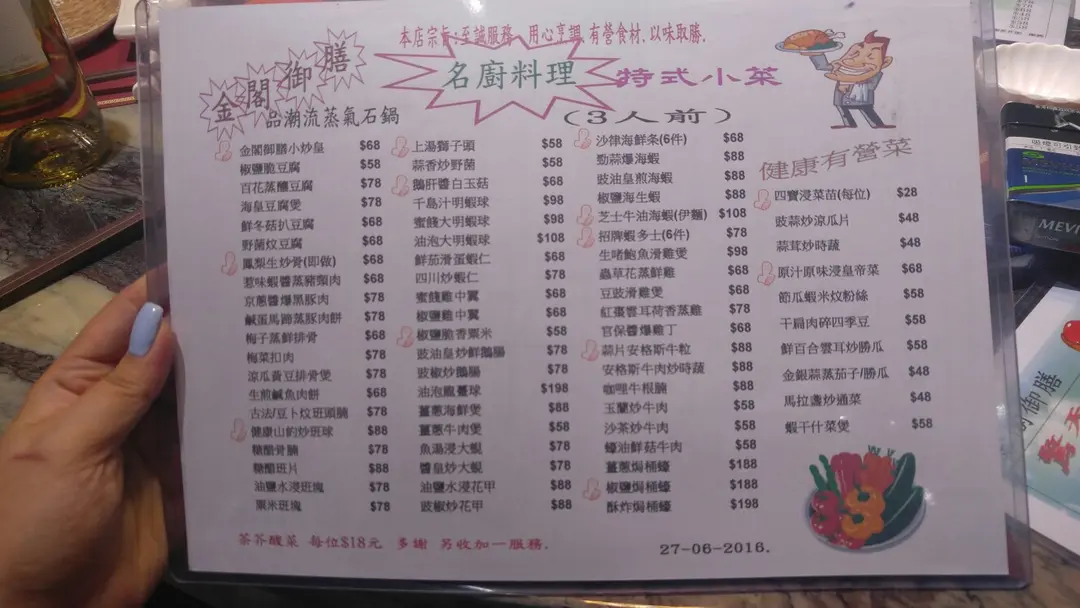 本店宗旨:至誠服務 用心烹調 有營食材,以味取勝.
金閣御膳
品潮流蒸氣石鍋
名廚料理
特式小菜
(3人前)
金閣御膳小炒皇 $68
椒鹽脆豆腐 $58
百花蒸釀豆腐 $78
海皇豆腐煲 $78
鮮冬菇扒豆腐 $68
野菌炆豆腐 $68
鳳梨生炒骨(即做) $68
惹味蝦醬蒸豬頸肉 $68
京蔥醬爆黑豚肉 $78
鹹蛋馬蹄蒸豚肉餅 $78
梅子蒸鮮排骨 $68
梅菜扣肉 $78
涼瓜黃豆排骨煲 $78
生煎鹹魚肉餅 $68
古法/豆卜炆班頭腩 $78
健康山的炒班球 $88
糖醋骨腩 $78
糖醋班片 $88
油鹽水浸班塊 $78
粟米班塊 $78
上湯獅子頭 $58
蒜香炒野菌 $58
鵝肝醬白玉菇 $68
千島汁明蝦球 $98
蜜餞大明蝦球 $98
油泡大明蝦球 $108
鮮茄滑蛋蝦仁 $68
四川炒蝦仁 $78
蜜餞雞中翼 $68
椒鹽雞中翼 $68
椒鹽脆香粟米 $58
豉油皇炒鮮鵝腸 $78
豉椒炒鵝腸 $78
油泡龍躉球 $198
薑蔥海鮮煲 $88
薑蔥牛肉煲 $58
魚湯浸大蜆 $78
醬皇炒大蜆 $78
油鹽水浸花甲 $88
豉椒炒花甲 $88
沙律海鮮条(6件) $68
勁蒜爆海蝦 $88
豉油皇煎海蝦 $88
椒鹽海生蝦 $88
芝士牛油海蝦(伊麵) $108
招牌蝦多士(6件) $78
生啫鮑魚滑雞煲 $98
蟲草花蒸鮮雞 $68
豆豉滑雞煲 $68
紅棗雲耳荷香蒸雞 $78
官保醬爆雞丁 $68
蒜片安格斯牛粒 $88
安格斯牛肉炒時蔬 $88
咖哩牛根腩 $88
玉蘭炒牛肉 $58
沙茶炒牛肉 $58
蠔油鮮菇牛肉 $58
薑蔥焗桶蠔 $188
椒鹽焗桶蠔 $188
酥炸焗桶蠔 $198
健康有營菜
四寶浸菜苗(每位) $28
豉蒜炒涼瓜片 $48
蒜茸炒時蔬 $48
原汁原味浸皇帝菜 $68
節瓜蝦米炆粉絲 $58
干扁肉碎四季豆 $58
鮮百合雲耳炒勝瓜 $58
金銀蒜蒸茄子/勝瓜 $48
馬拉盞炒通菜 $48
蝦干什菜煲 $58
茶芥酸菜 每位$18元 多謝 另收加一服務.
27-06-2016.
MEVI
御膳